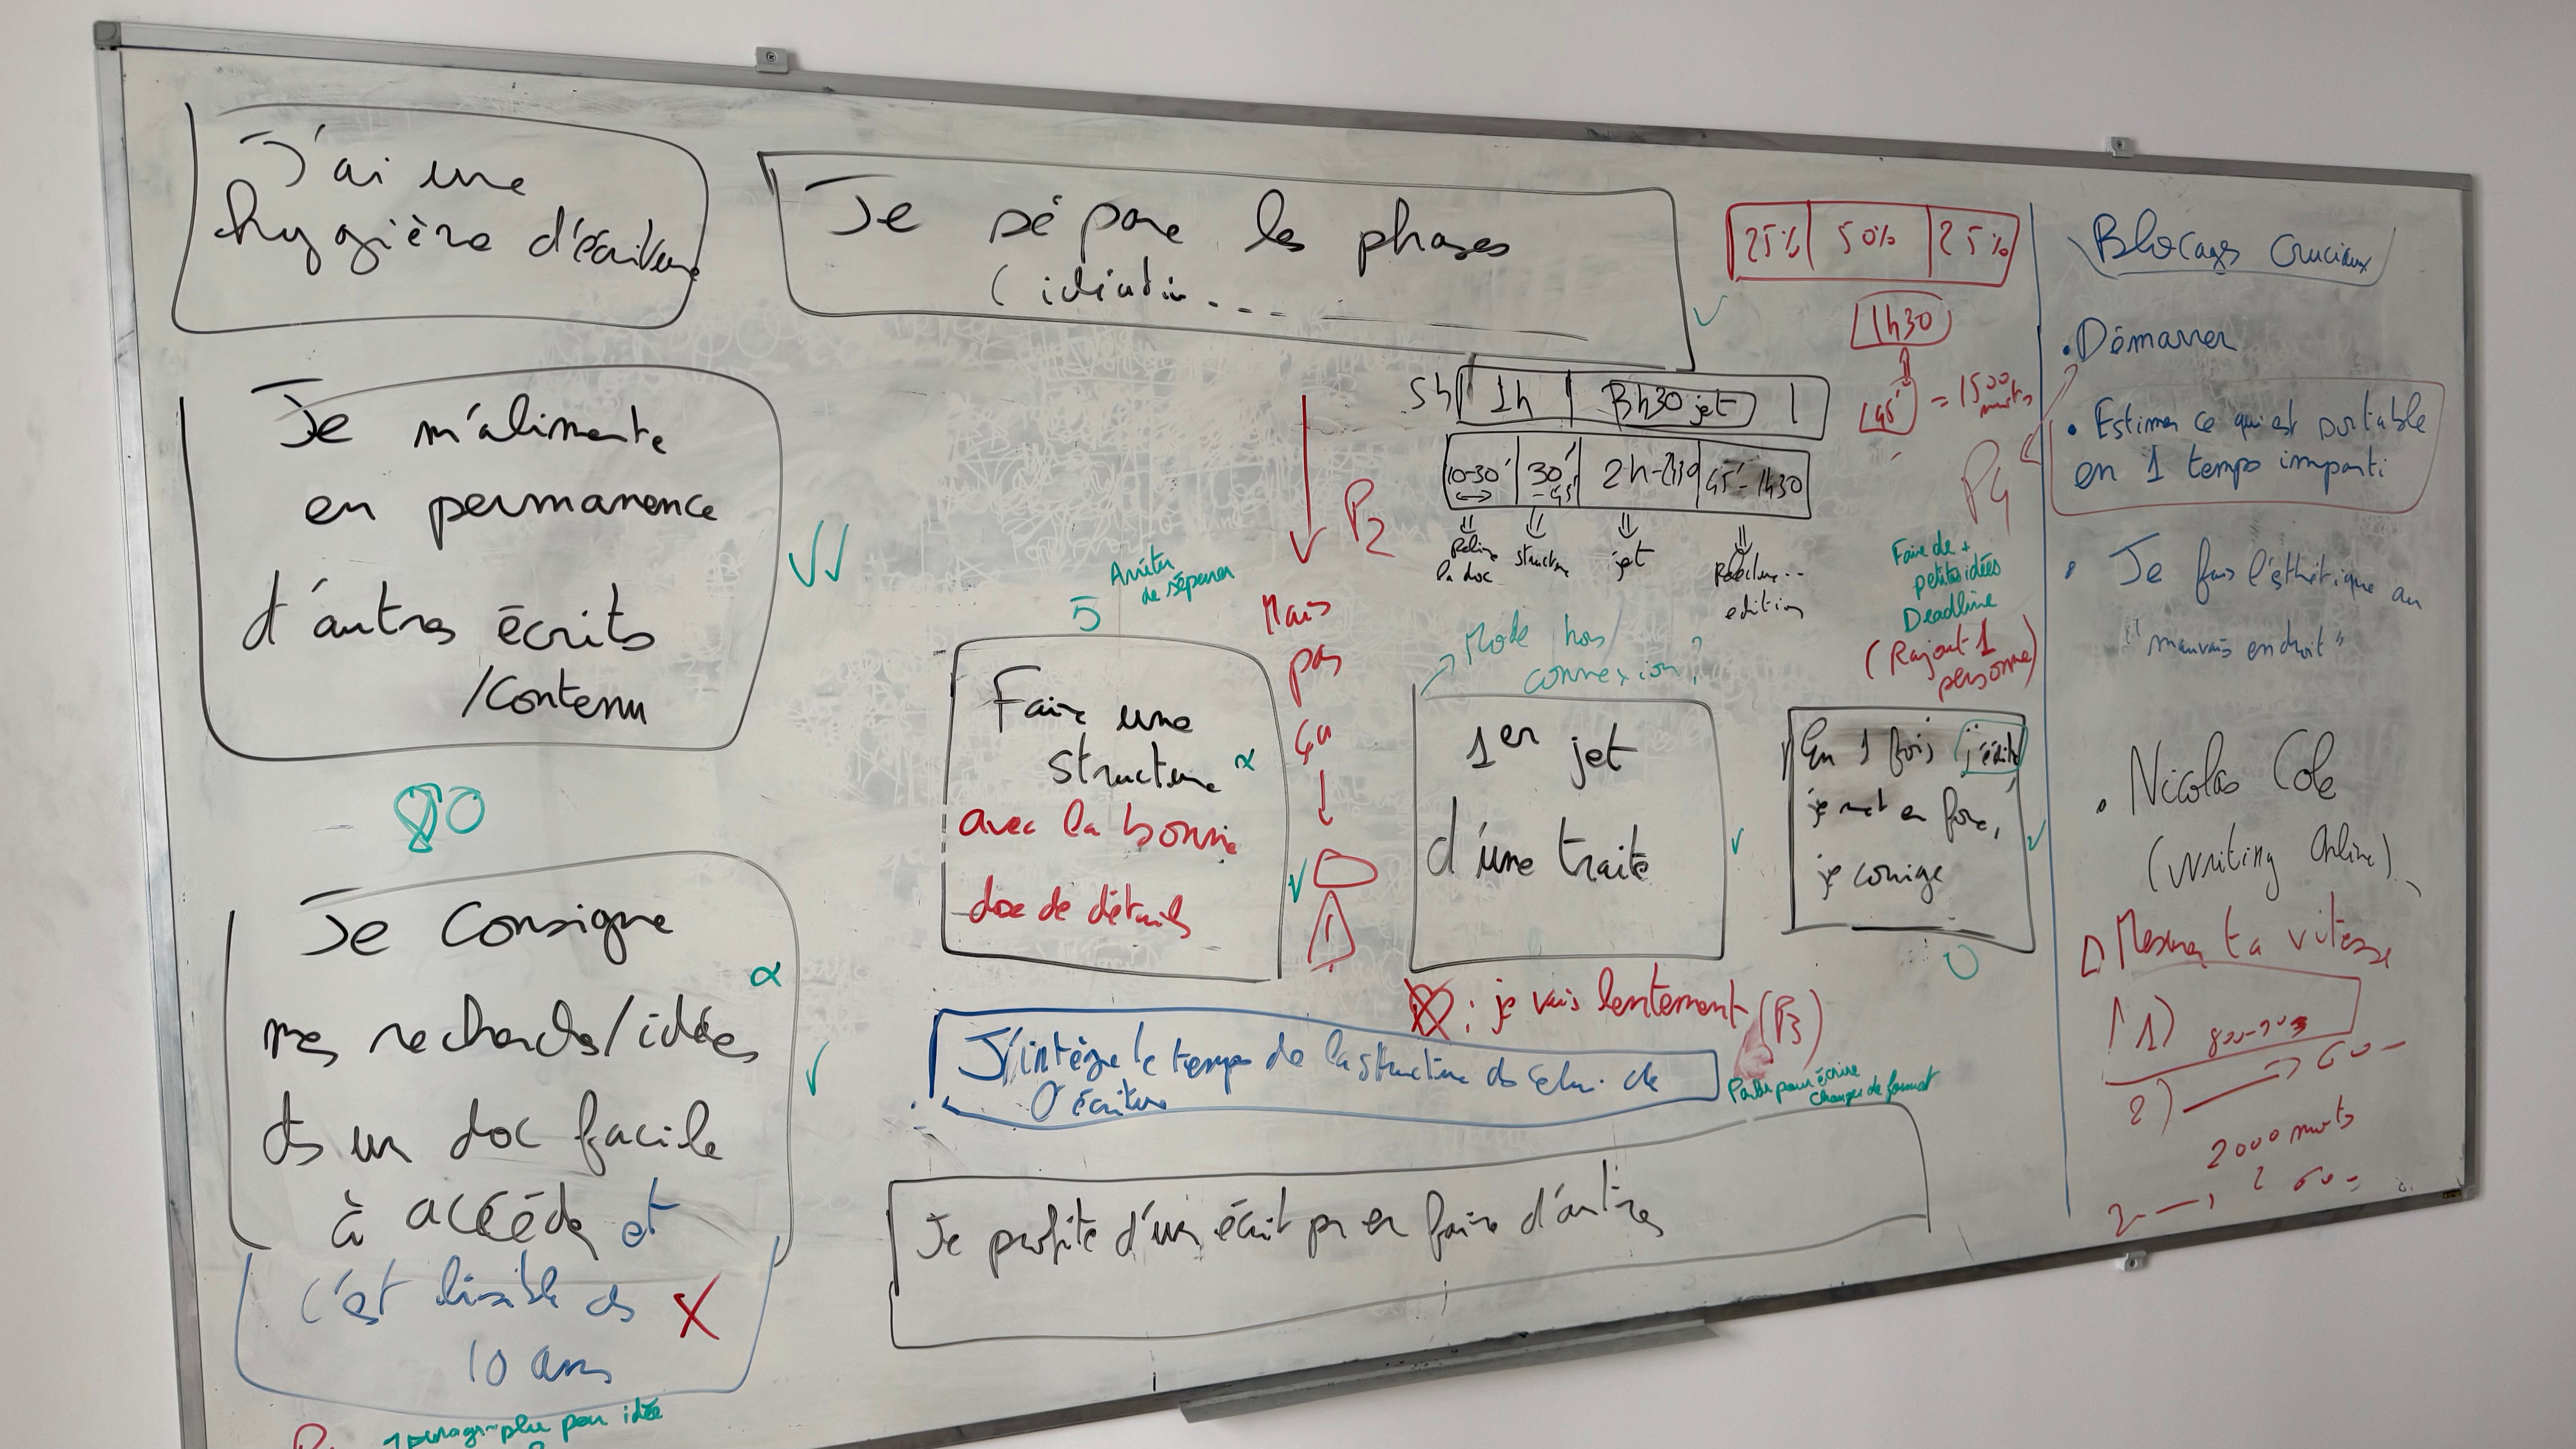 J'ai une
hygière d'écriture
Je m'alimente
en permanence
d'autres écrits
/Contenu
Je Consigne
α
mes recherches/idées
ds un doc facile
à accéder et
c'est lisible ds
10 ans
X
1 paragraphe par idée
Je sépare les phases
(idéation...
5h 1h 3h30 jet
10-30' 30'-45' 2h-2h30 45'-1h30
Relire
la doc
structure
jet
Relecture...
edition
25% 50% 25%
1h30
45' = 1500
mots
P2
Mais
pas
ça
Arrêter
de séparer
5
Faire une
structure α
avec la bonne
doc de détails
Mode hors
connexion?
1er jet
d'une traite
: je vais lentement (P3)
Faire de +
petites idées
Deadline
(Rajout 1
personne)
P4
En 1 fois j'écris
je met en forme,
je corrige
J'intègre le temps de la structure ds celui de
l'écriture
Parler pour écrire
changer de format
Je profite d'un écrit pr en faire d'autres
Blocages Cruciaux
• Démarrer
• Estimer ce qui est sortable
en 1 temps imparti
• Je fais l'esthétique au
"mauvais endroit"
• Nicolas Cole
(Writing Online)
Mesurer ta vitesse
1)
2)
2000 mots